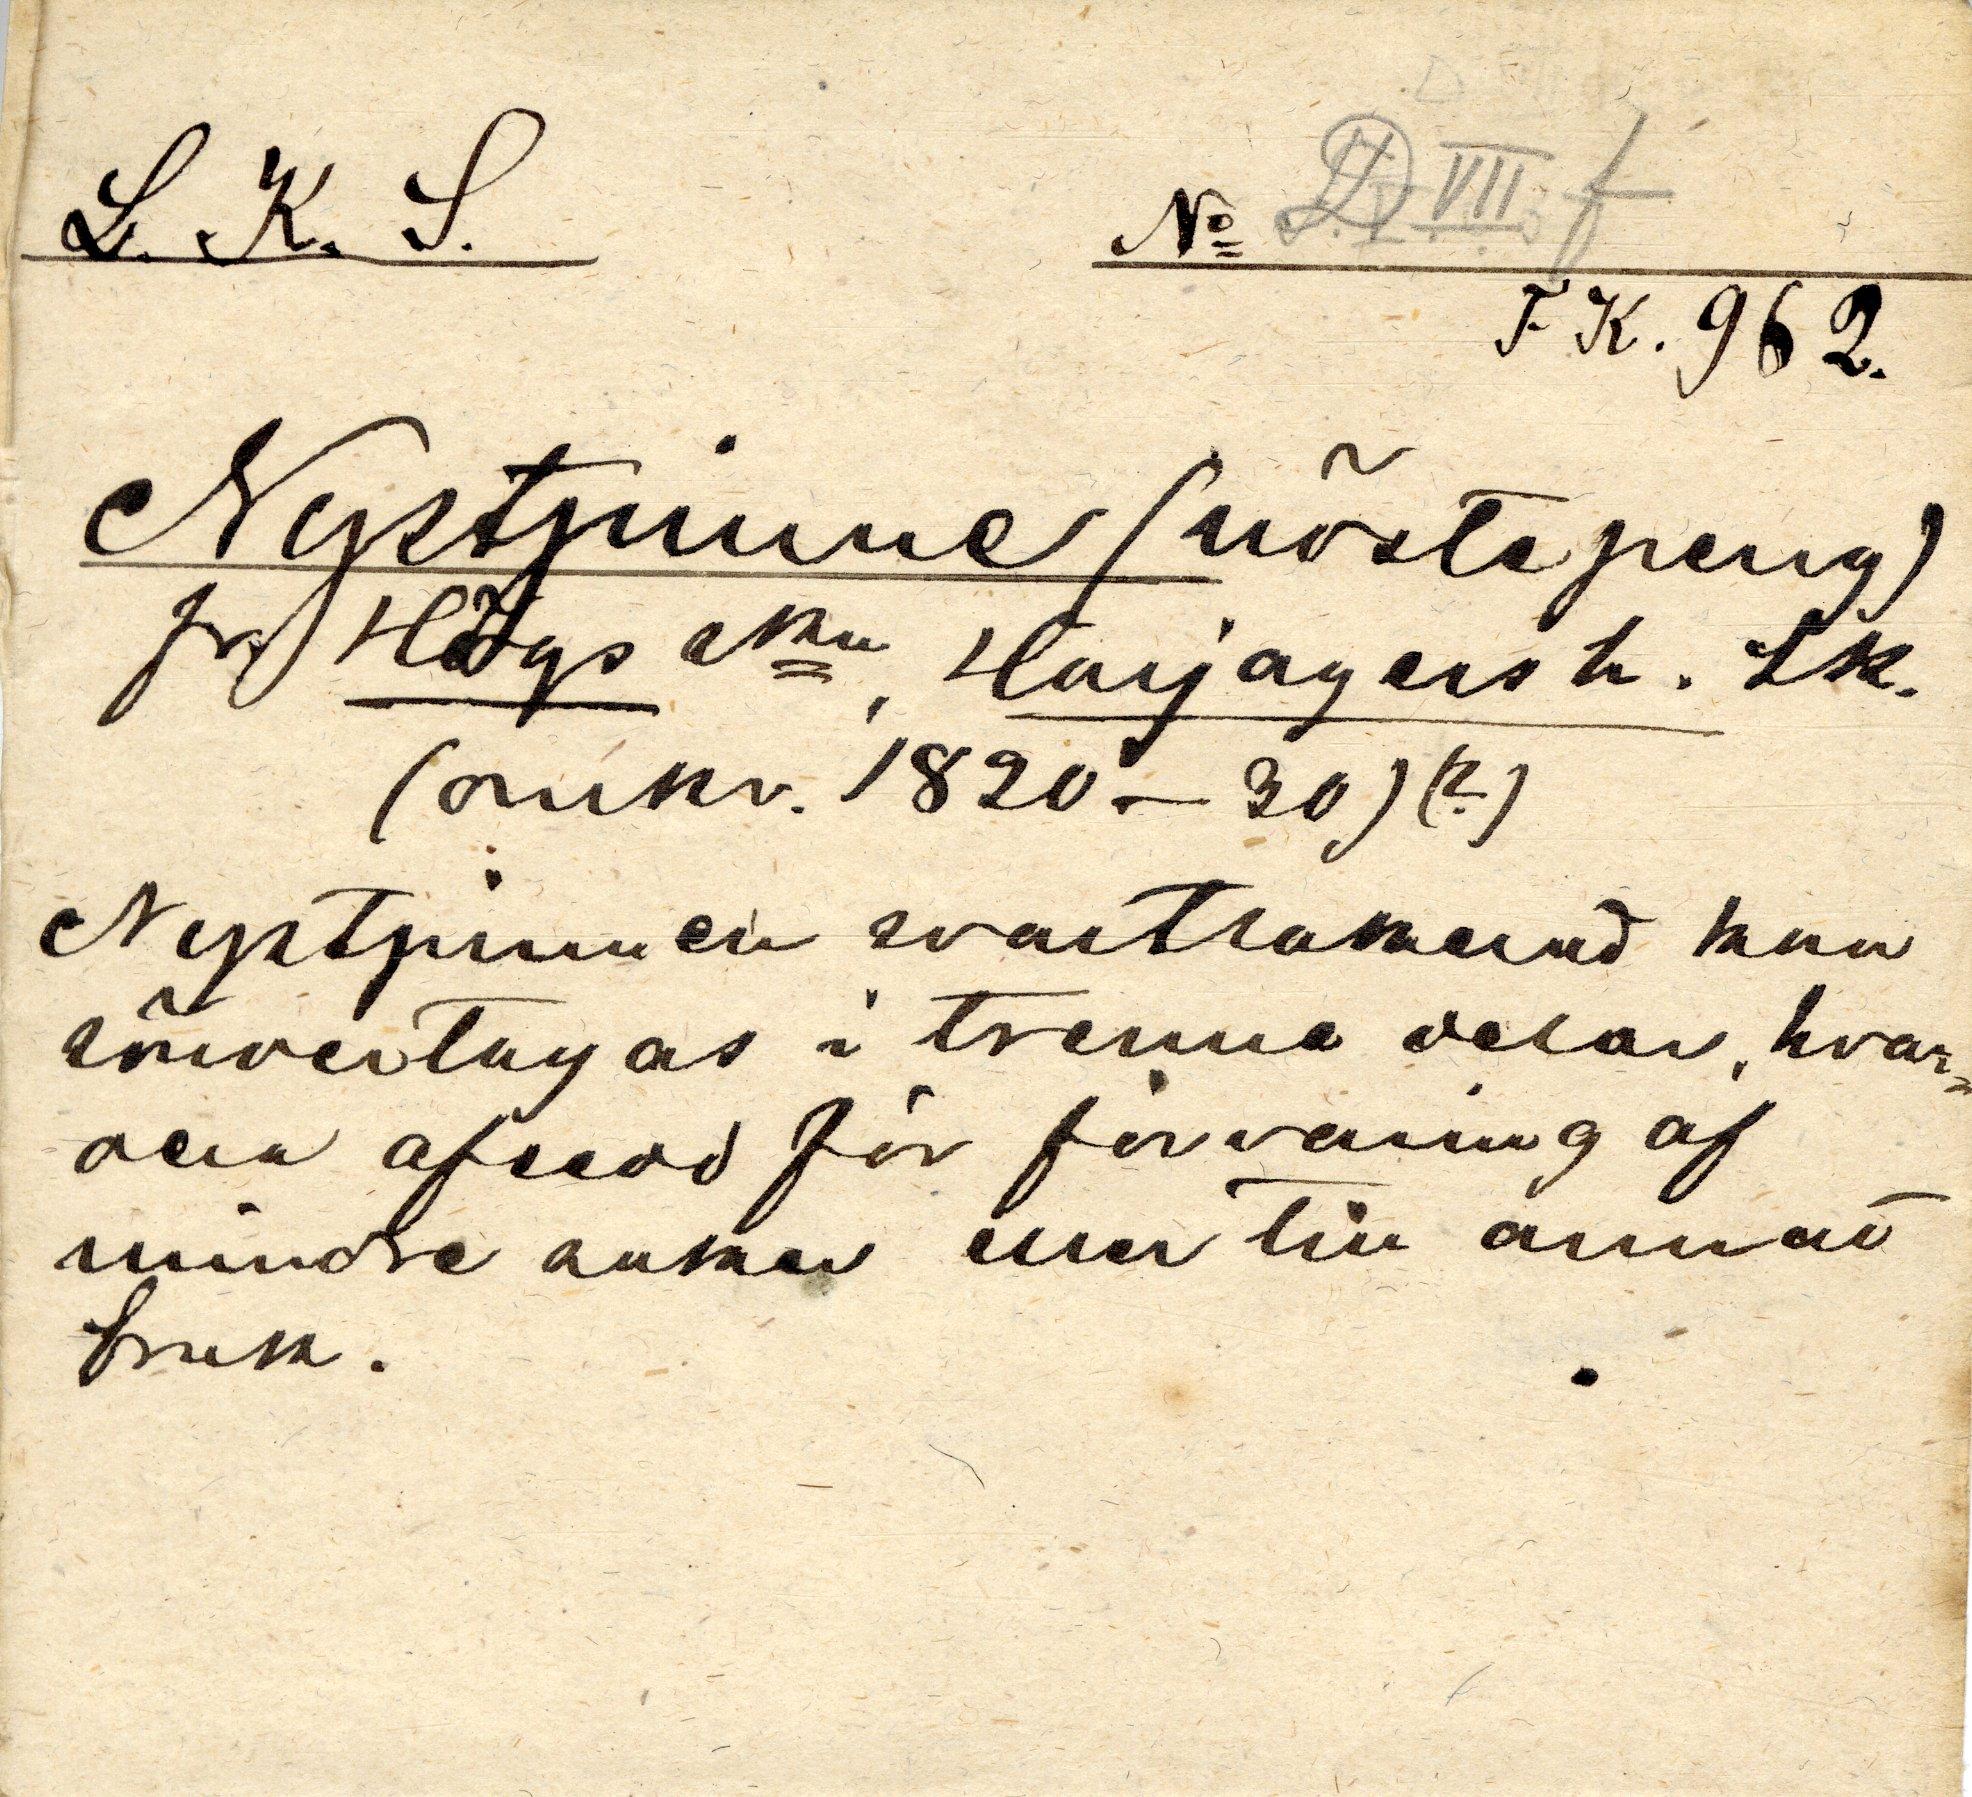 L. K. S.
No D VII f
F K. 962.
Nystpinne (nöstepeng)
fr. Högs skn, Harjagers h. Sk.
(omkr. 1820 – 30) (?.)
Nystpinnen svartlakerad kan
söndertagas i trenne delar, hvar=
dera afsedd för förvaring af
mindre saker eller till annat
bruk.